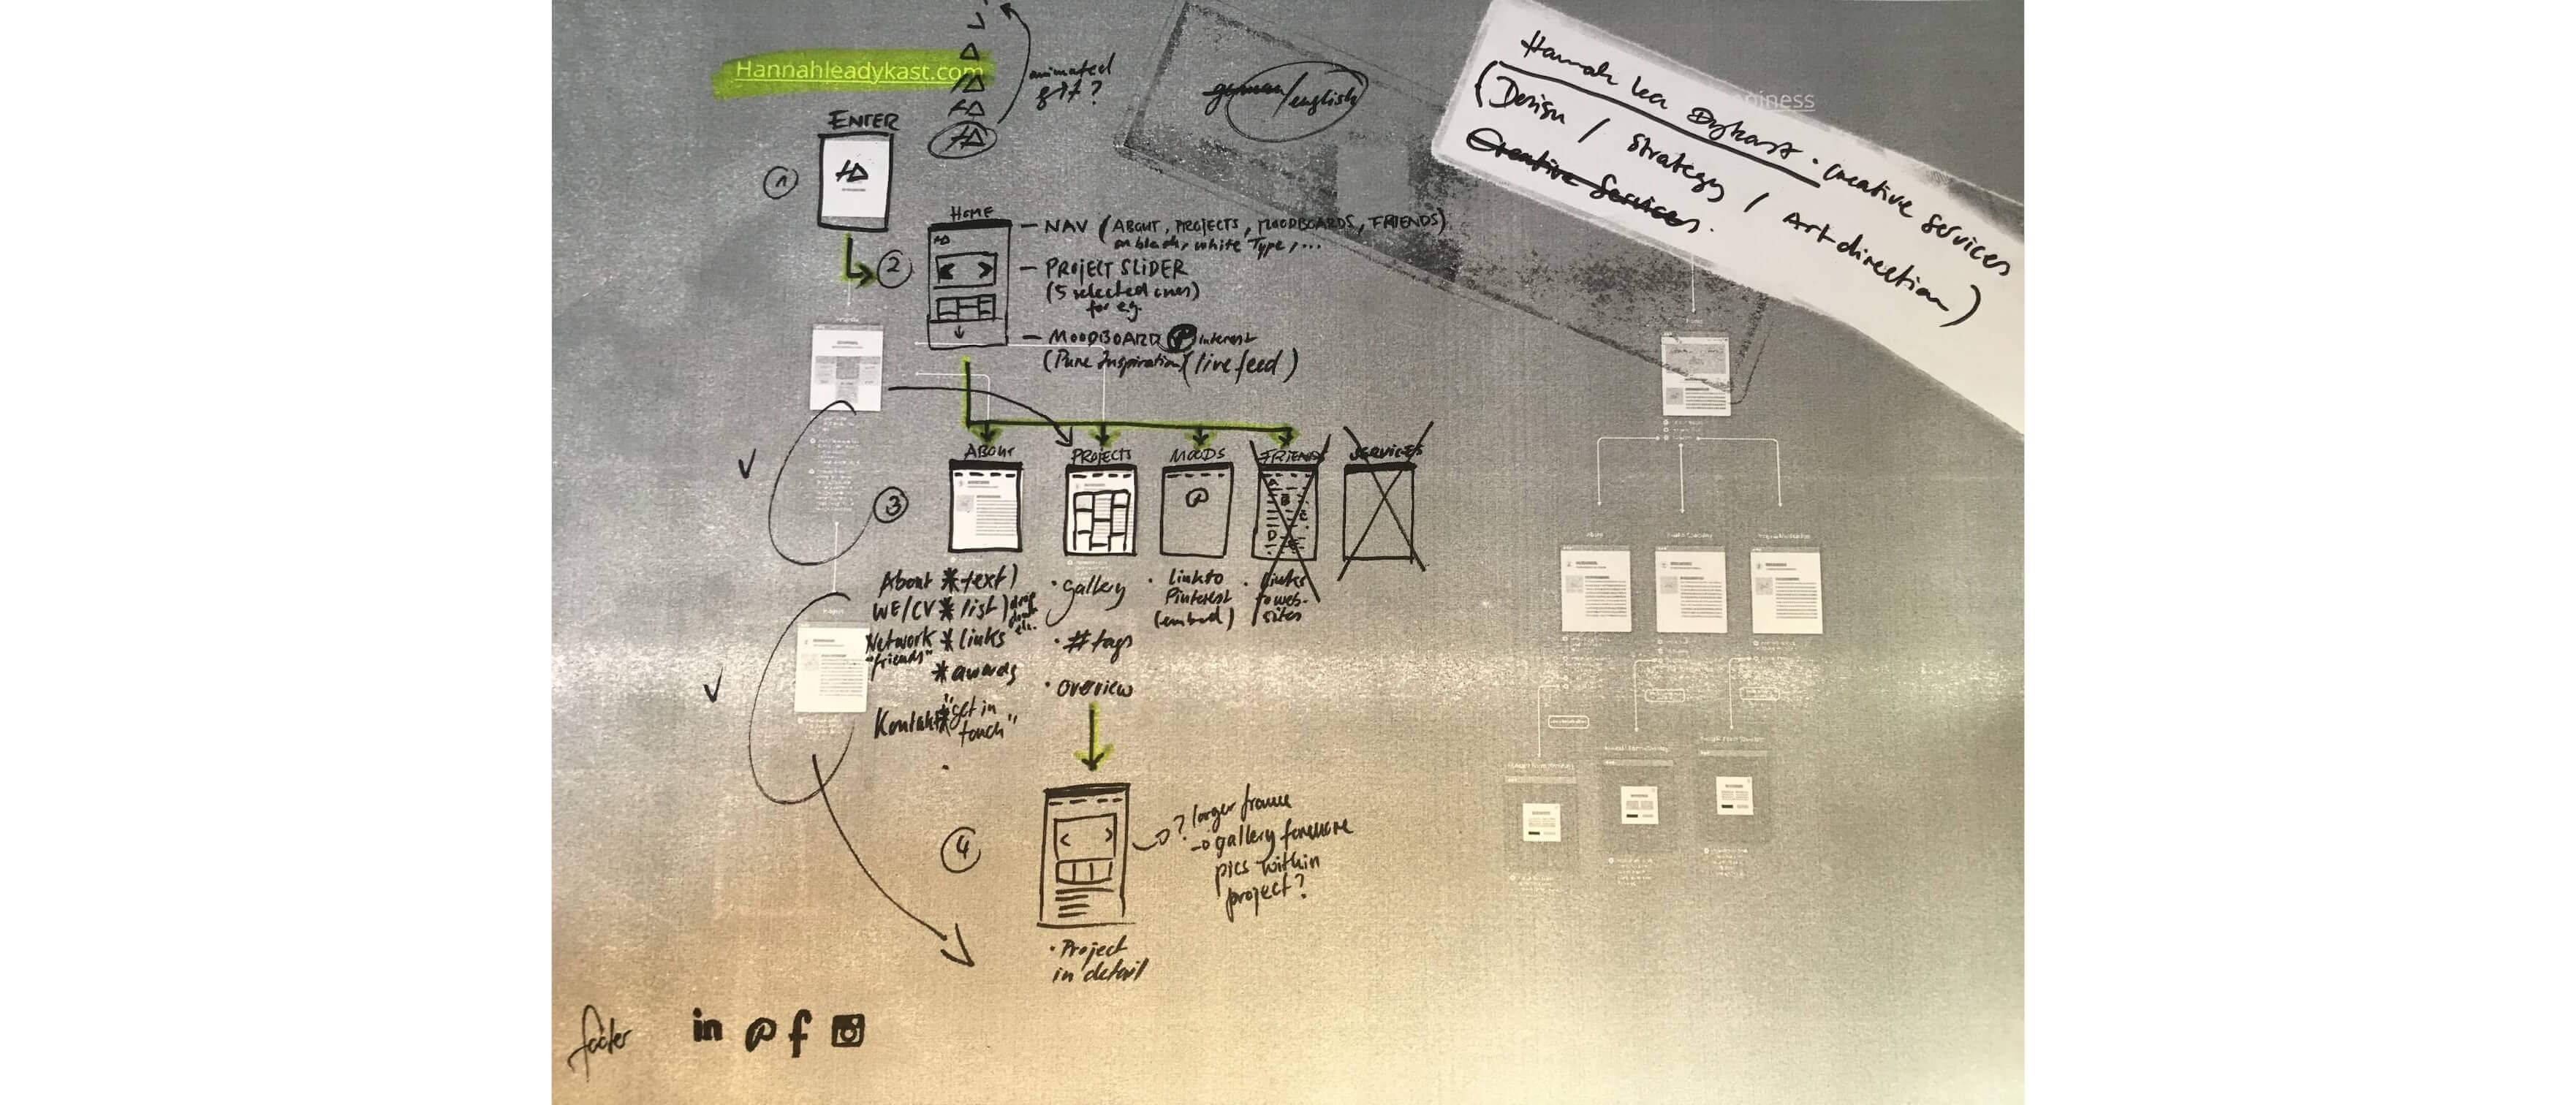 Hannahleadykast.com
animated
gif?
german/english
Hannah Lea Dykast · creative services
(Design / Strategy / Art direction)
Creative Services.
piness
ENTER
HD
1
HOME
2
HD
— NAV (ABOUT, PROJECTS, MOODBOARDS, FRIENDS)
on black, white Type, ...
— PROJECT SLIDER
(5 selected ones)
for e.g.
— MOODBOARD Pinterest
(Pure Inspiration) (live feed)
ABOUT
PROJECTS
MOODS
FRIENDS
SERVICES
3
About * text)
WE/CV * list) drop
down
etc.
Network * links
"friends"
* awards
Kontakt * "get in
touch"
· gallery
· # tags
· overview
· Link to
Pinterest
(embed)
· Links
to web-
sites
4
? larger frame
gallery for more
pics within
project?
· Project
in detail
footer
in f